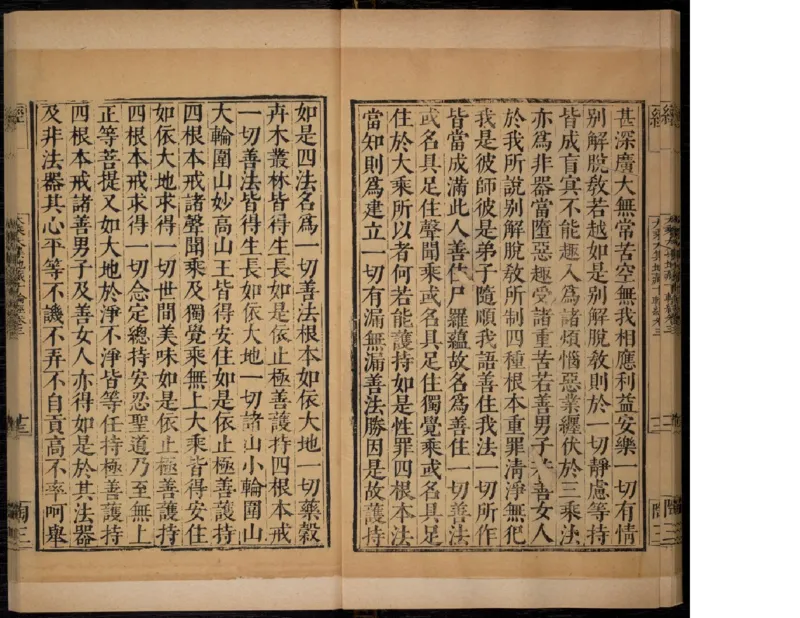 甚深廣大無常苦空無我相應利益安樂一切有情
別解脫敎若越如是別解脫敎則於一切靜慮等持
皆成盲冥不能趣入爲諸煩惱惡業纏伏於三乘法
亦爲非器當墮惡趣受諸重苦若善男子善女人
於我所說別解脫敎所制四種根本重罪清淨無犯
我是彼師彼是弟子隨順我語善住我法一切所作
皆當成滿此人善住尸羅蘊故名爲善住一切善法
或名具足住聲聞乘或名具足住獨覺乘或名具足
住於大乘所以者何若能護持如是性罪四根本法
當知則爲建立一切有漏無漏善法勝因是故護持
如是四法名爲一切善法根本如依大地一切藥穀
卉木叢林皆得生長如是依止極善護持四根本戒
一切善法皆得生長如依大地一切諸山小輪圍山
大輪圍山妙高山王皆得安住如是依止極善護持
四根本戒諸聲聞乘及獨覺乘無上大乘皆得安住
如依大地求得一切世間美味如是依止極善護持
四根本戒求得一切念定總持安忍聖道乃至無上
正等菩提又如大地於淨不淨皆等任持極善護持
四根本戒諸善男子及善女人亦得如是於其法器
及非法器其心平等不譏不弄不自貢高不率呵舉
經
陶三